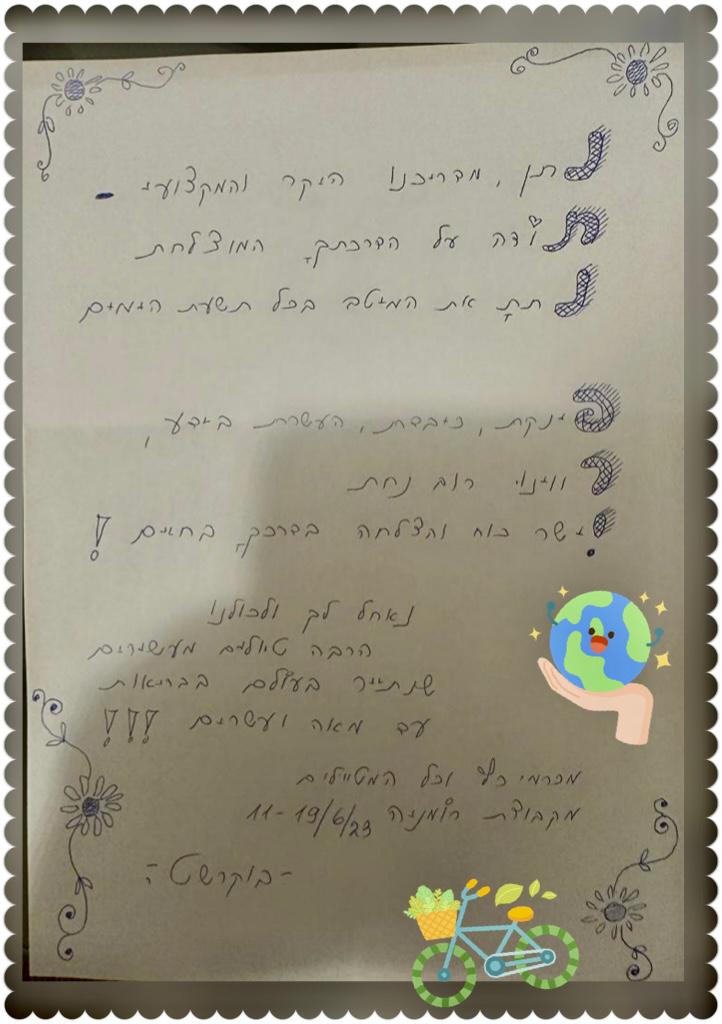 נתן, מדריכנו היקר והמקצועי -
תודה על הדרכתך המוצלחת
נתת את המיטב בכל תשעת הימים
פינקת, כיבדת, העשרת בידע,
רווינו רוב נחת
יישר כוח והצלחה בדרכך בחיים!
נאחל לך ולכולנו
הרבה טיולים מעשירים
שנתייר בעולם בבריאות
עד מאה ועשרים !!!
וכל המטיילים
מקבוצת רומניה 11-19/6/23
-בוקרשט-